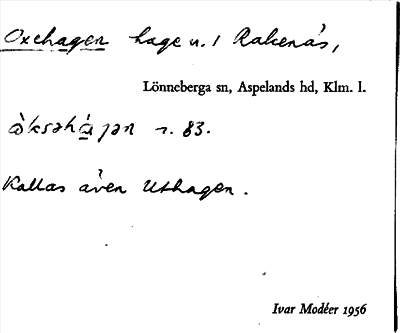 Oxehagen hage n. 1 Rakenäs,
Lönneberga sn, Aspelands hd, Klm. l.
r. 83.
Kallas även Uthagen.
Ivar Modéer 1956